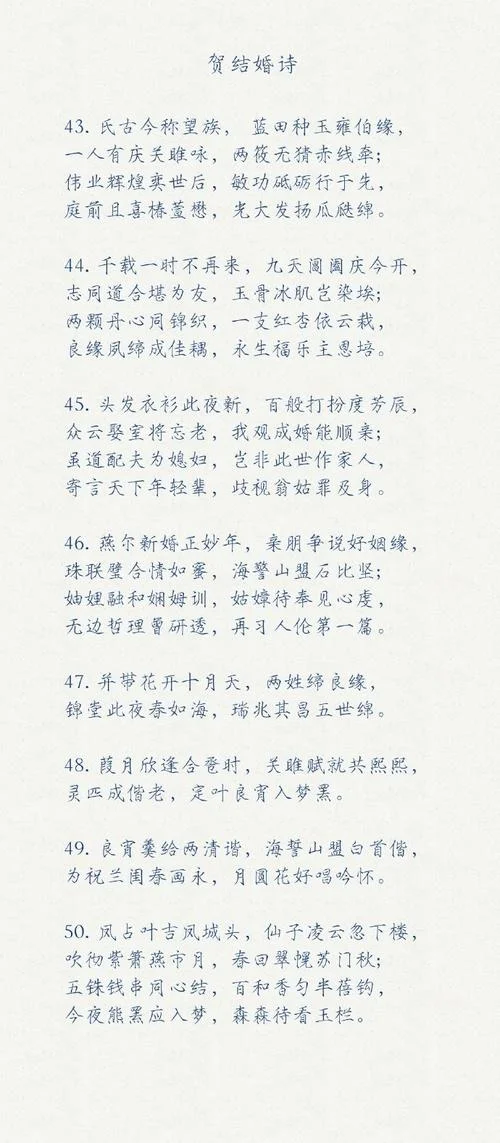 贺结婚诗
43. 氏古今称望族， 蓝田种玉雍伯缘，
一人有庆关雎咏，两筱无猜赤线牵；
伟业辉煌奕世后，敏功砥砺行于先，
庭前且喜椿萱懋，光大发扬瓜瓞绵。
44. 千载一时不再来，九天阊阖庆今开，
志同道合堪为友，玉骨冰肌岂染埃；
两颗丹心同锦织，一支红杏依云栽，
良缘夙缔成佳耦，永生福乐主恩培。
45. 头发衣衫此夜新，百般打扮度芳辰，
众云娶室将忘老，我观成婚能顺亲；
虽道配夫为媳妇，岂非此世作家人，
寄言天下年轻辈，歧视翁姑罪及身。
46. 燕尔新婚正妙年，亲朋争说好姻缘，
珠联璧合情如蜜，海誓山盟石比坚；
妯娌融和娴姆训，姑嫜待奉见心虔，
无边哲理曾研透，再习人伦第一篇。
47. 并带花开十月天，两姓缔良缘，
锦堂此夜春如海，瑞兆其昌五世绵。
48. 葭月欣逢合卺时，关雎赋就共熙熙，
灵匹成偕老，定叶良宵入梦罴。
49. 良宵羹给两清谐，海誓山盟白首偕，
为祝兰闺春画永，月圆花好唱吟怀。
50. 凤占叶吉凤城头，仙子凌云忽下楼，
吹彻紫箫燕市月，春回翠幌苏门秋；
五铢钱串同心结，百和香匀半蓓钩，
今夜熊罴应入梦，森森待看玉栏。